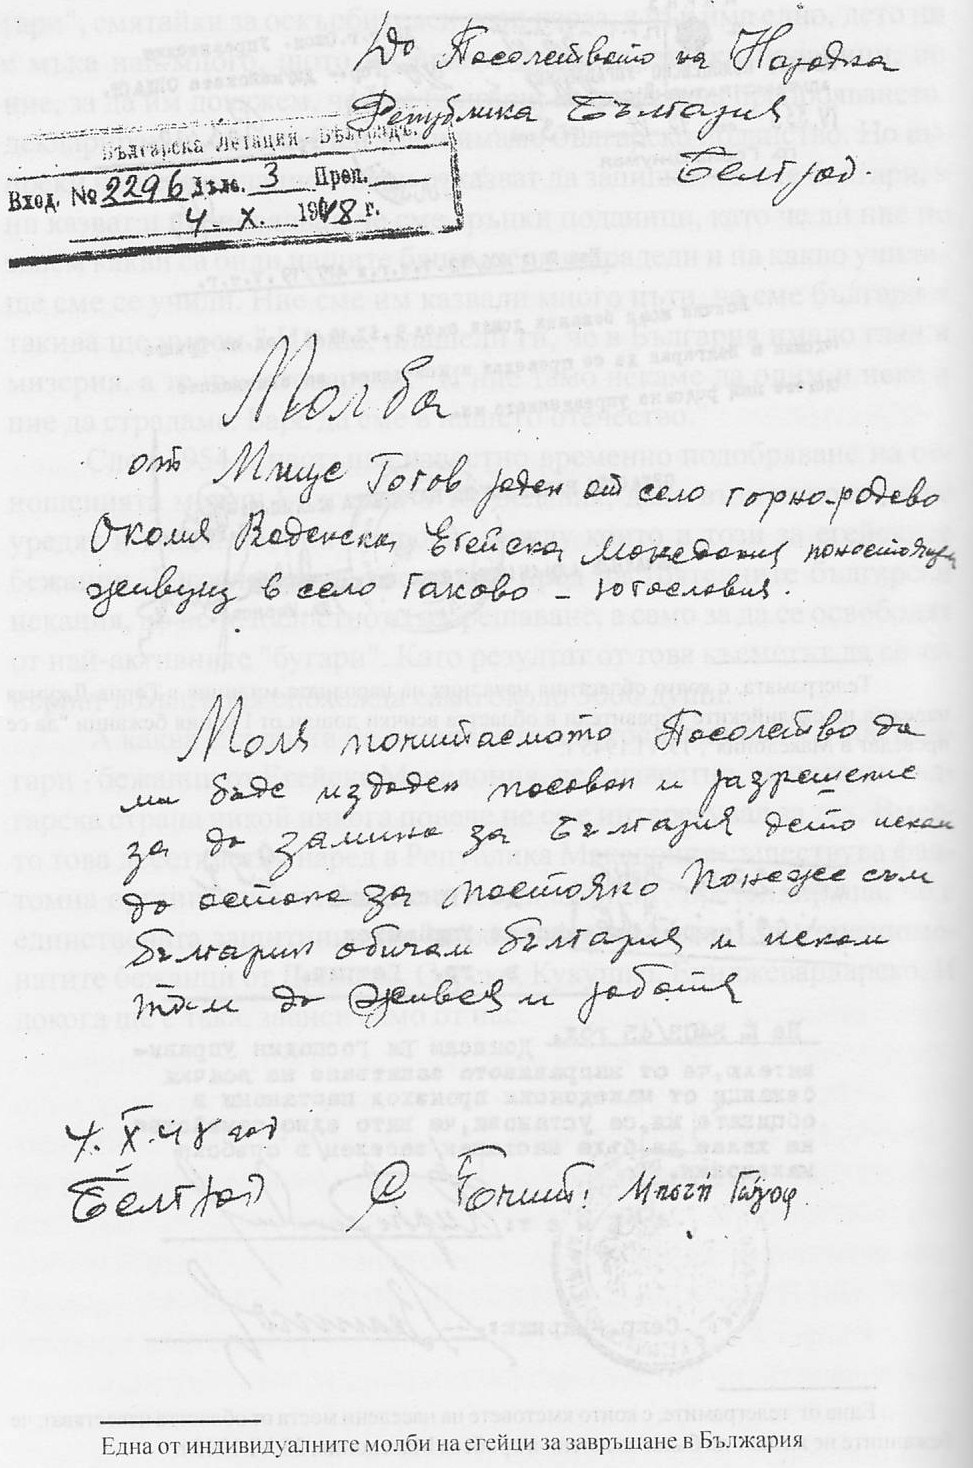 До Посолството на Народна
Република България
Белград.
Българска Легация - Белградъ.
Вход. № 2296 дѣло. 3 Преп.
4. X. 1948 г.
Молба
от Мицо Гогов роден от село горно-родево
Околия Воденска, Егейска Македония понастоящем
живущ в село Гаково – Югославия.
Моля почитаемото Посолство да
ми бъде издаден посован и разрешение
за да замина за България дето искам
да остана за постояно понеже съм
българин обичам България и искам
там да живея и работя
4. X. 48 год
Белград
С Почит:
Една от индивидуалните молби на егейци за завръщане в Бължария